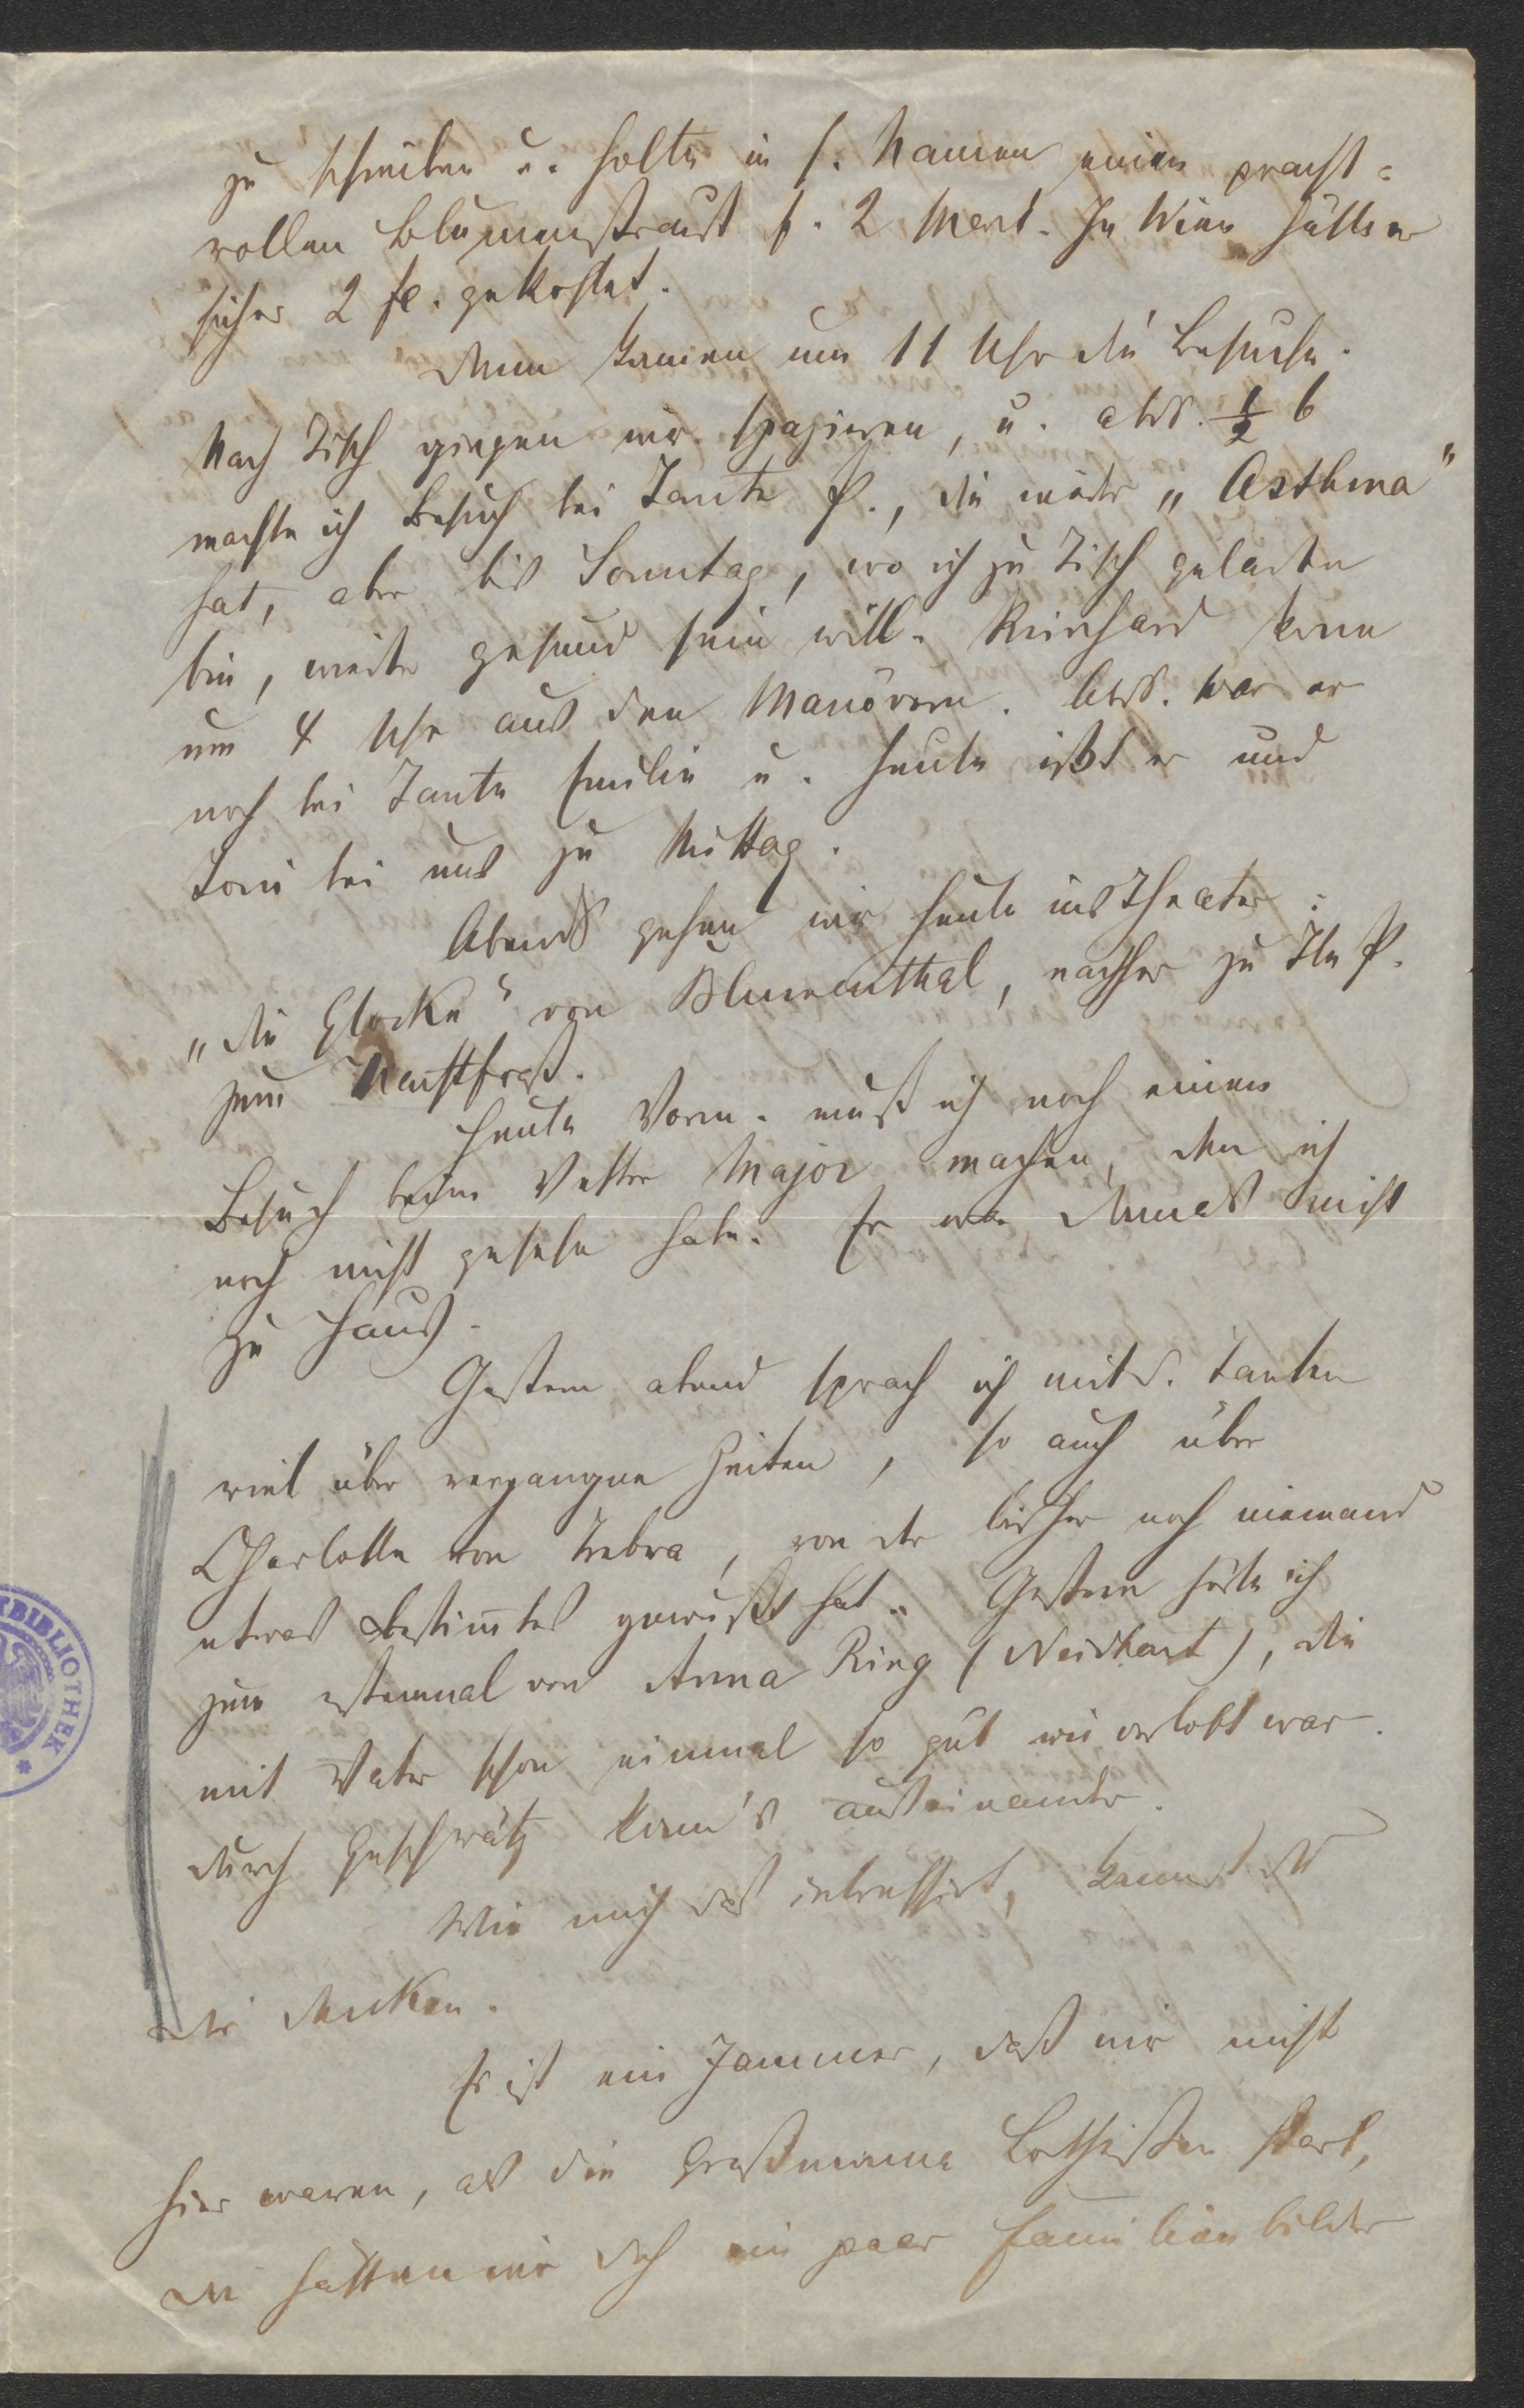 zu schreiben u. holte in s. Namen einen pracht=
vollen Blumenstrauß f. 2 Mark. In Wien hätte er
sicher 2 fl. gekostet.
Dann kamen um 11 Uhr die Besuche.
Nach Tisch giengen wir spazieren, u. abds. ½ 6
machte ich Besuch bei Tante P., die wieder „Asthma"
hat, aber bis Sonntag, wo ich zu Tisch geladen
bin, wieder gesund sein will. Reinhard kam
um 4 Uhr aus den Manövern. Abds. war er
noch bei Tante Emilie u. heute ißt er und
Toni bei uns zu Mittag.
Abends gehen wir heute ins Theater:
„die Glocke" von Blumenthal, nachher zu Tte P.
zum Nachtfraß.
Heute Vorm. muß ich noch einen
Besuch beim Vetter Major machen, den ich
noch nicht gesehen habe. Er war damals nicht
zu Haus.
Gestern abend sprach ich mit d. Tanten
viel über vergangne Zeiten, so auch über
Charlotte von Trebra, von der bisher noch niemand
etwas bestimtes gewußt hat. Gestern hörte ich
zum erstenmal von Anna Ring (Neidhart), die
mit Vater schon einmal so gut wie verlobt war.
durch Geschwätz kam's auseinander.
Wie mich das interessirt, kannst du
dir denken.
Es ist ein Jammer, daß wir nicht
hier waren, als die Großmama Lothißen starb,
da hätten wir doch ein paar Familienbilder
BIBLIOTHEK